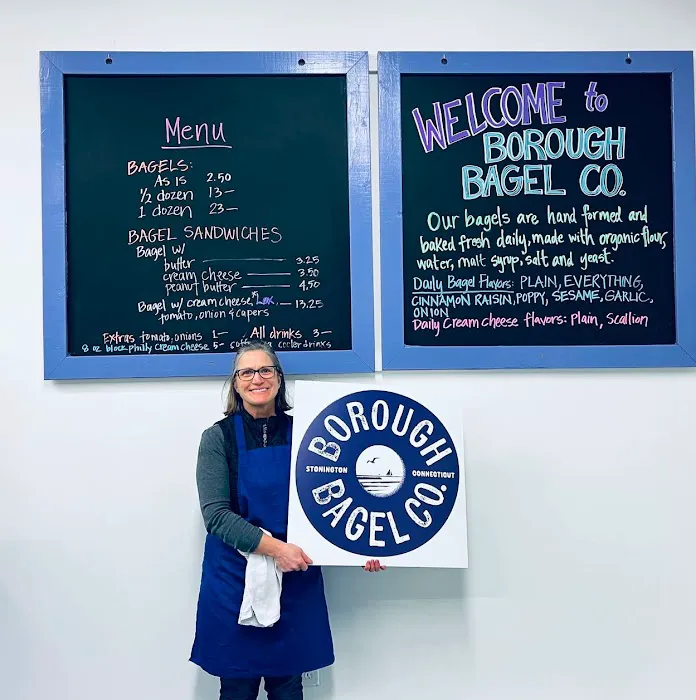 Menu
BAGELS:
AS IS 2.50
1/2 dozen 13—
1 dozen 23—
BAGEL SANDWICHES
Bagel w/
butter — 3.25
cream cheese — 3.50
peanut butter — 4.50
Bagel w/ cream cheese, Lox — 13.25
tomato, onion & capers
Extras tomato, onions 1— All drinks 3—
8 oz block philly cream cheese 5— cooler drinks
WELCOME to
BOROUGH
BAGEL CO.
Our bagels are hand formed and
baked fresh daily, made with organic flour,
water, malt syrup, salt and yeast.
Daily Bagel Flavors: PLAIN, EVERYTHING,
CINNAMON RAISIN, POPPY, SESAME, GARLIC,
ONION
Daily Cream cheese flavors: Plain, Scallion
BOROUGH
STONINGTON CONNECTICUT
BAGEL CO.